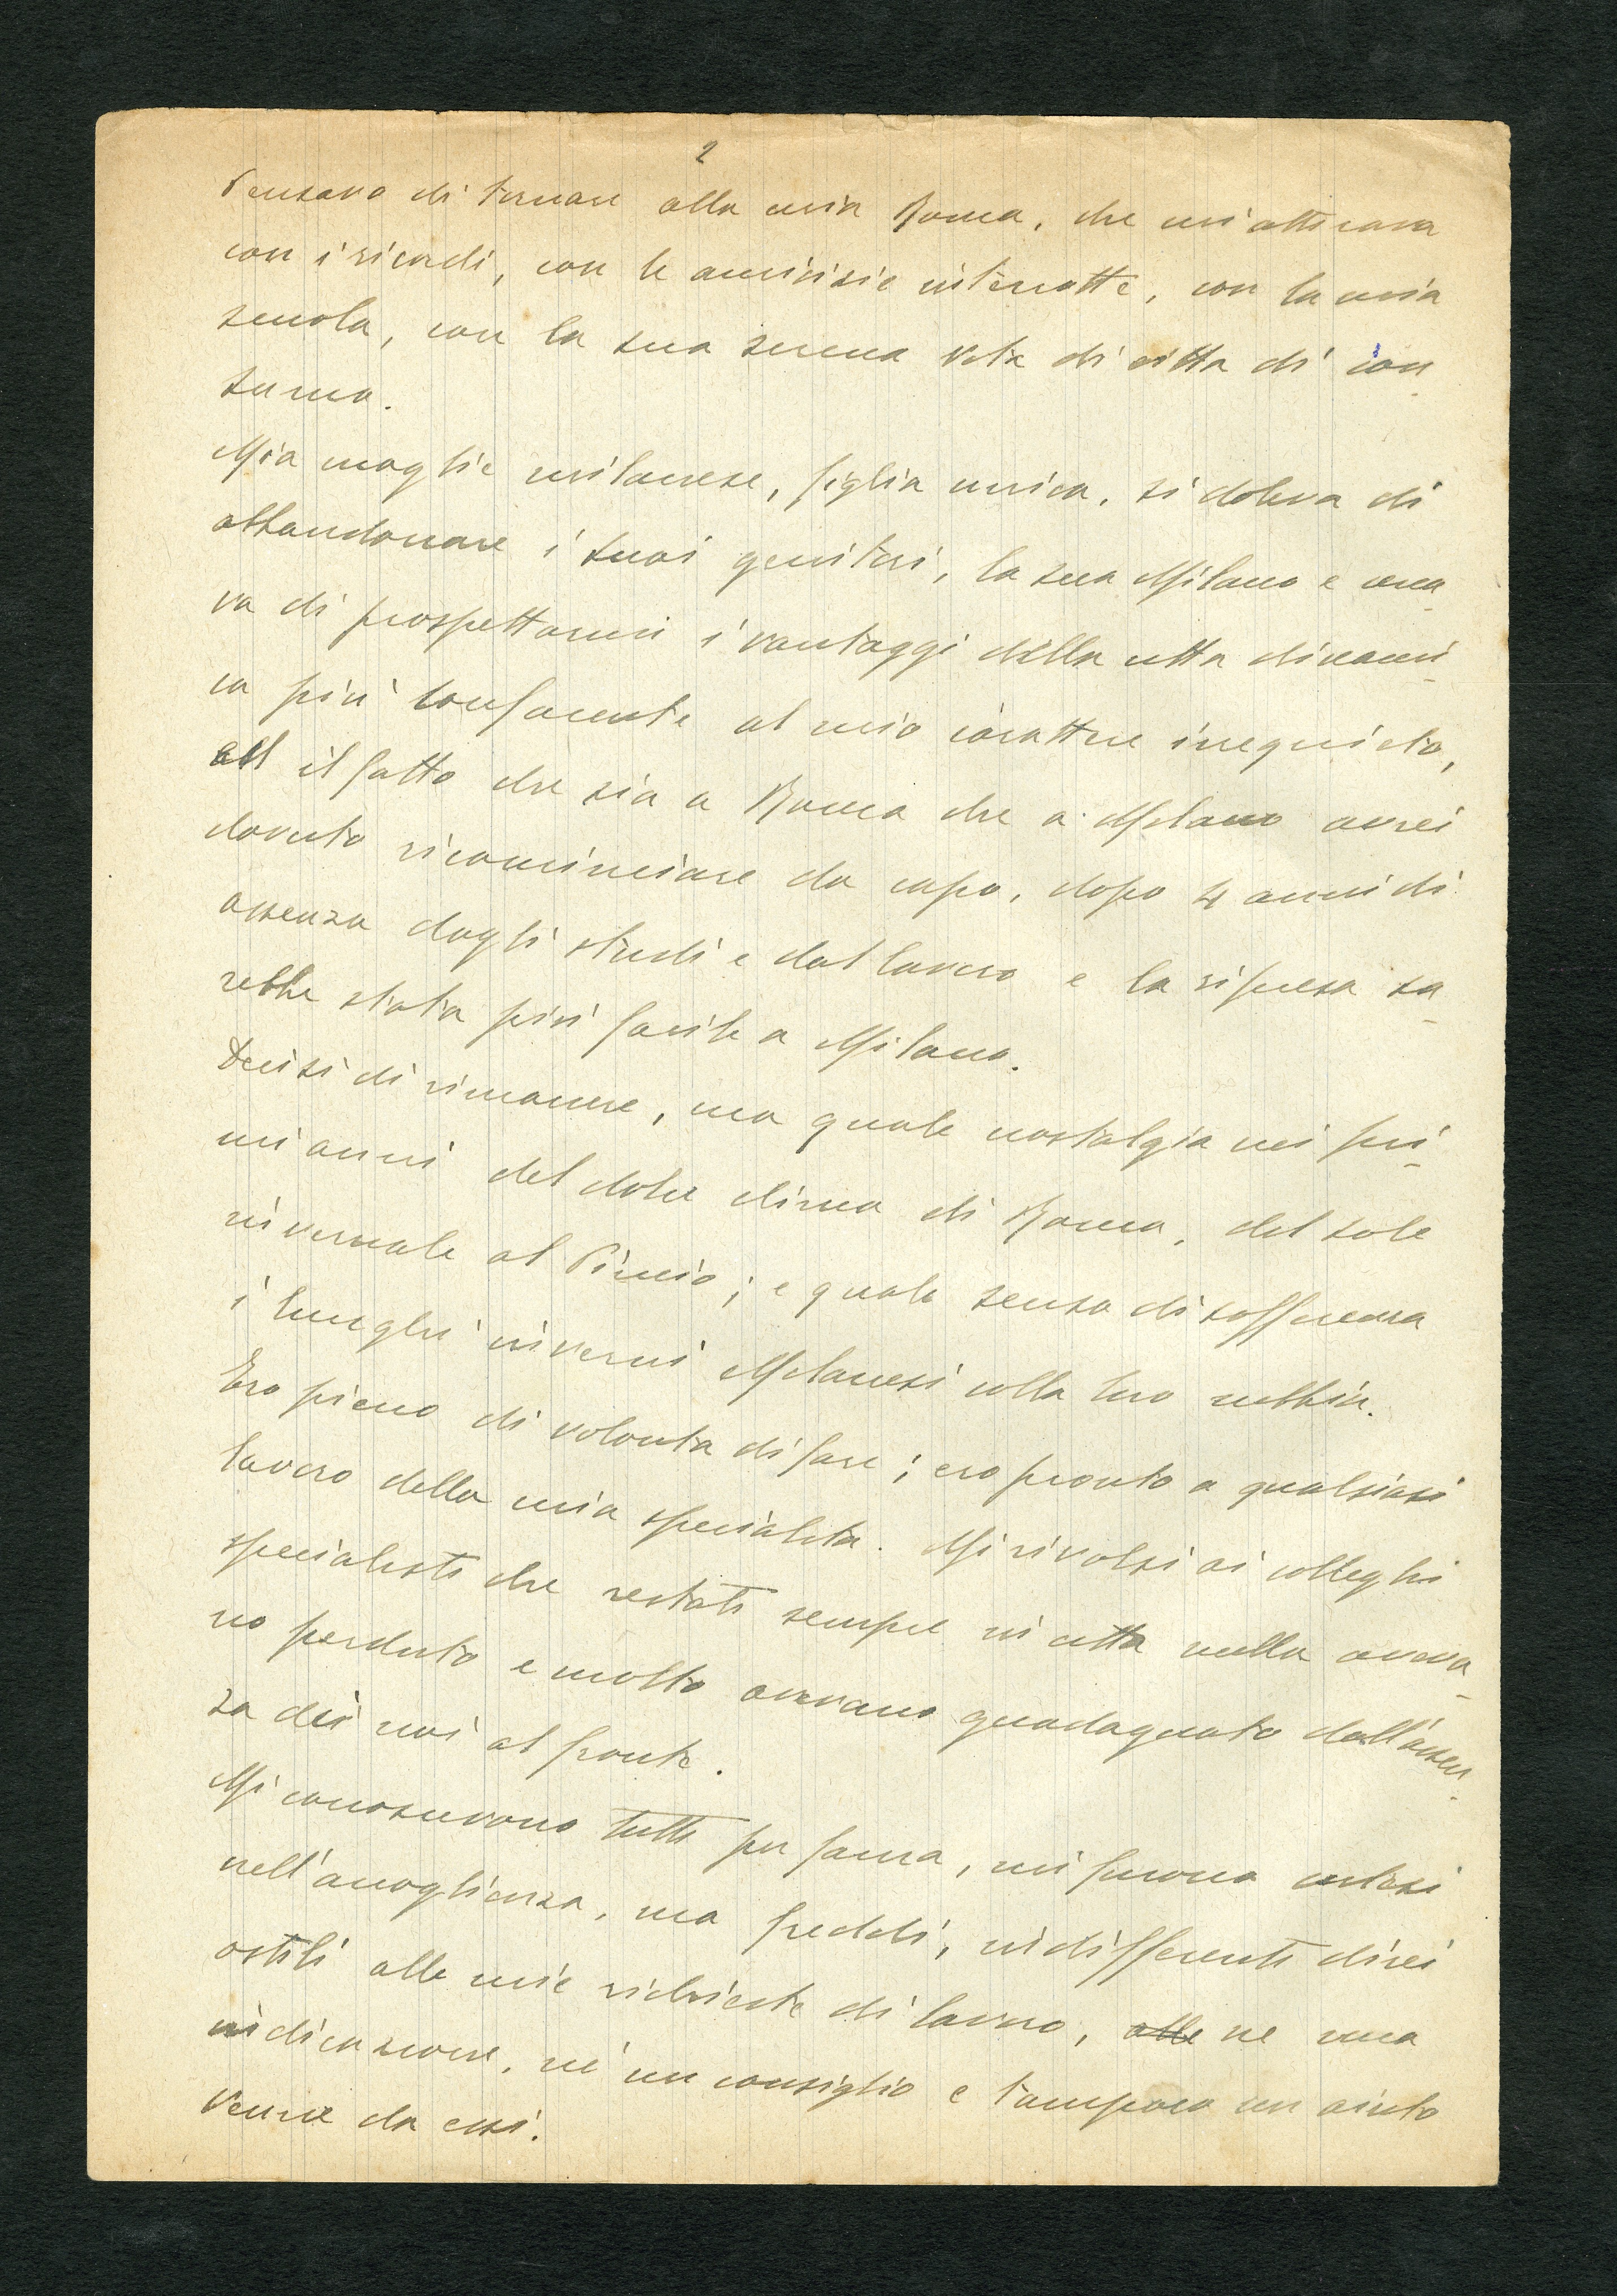 2
Pensavo di tornare alla mia Roma, che mi attirava
con i ricordi, con le amicizie interrotte, con la mia
scuola, con la sua serena vita di città di con-
sumo.
Mia moglie milanese, figlia unica, si doleva di
abbandonare i suoi genitori, la sua Milano e cerca-
va di prospettarmi i vantaggi della città dinami-
ca più confacente al mio carattere irrequieto,
ed il fatto che sia a Roma che a Milano avrei
dovuto ricominciare da capo, dopo 4 anni di
assenza dagli studi e dal lavoro e la ripresa sa-
rebbe stata più facile a Milano.
Decisi di rimanere, ma quale nostalgia nei pri-
mi anni del dolce clima di Roma, del sole
invernale al Pincio; e quale senso di sofferenza
i lunghi inverni Milanesi colla loro nebbia.
Ero pieno di volontà di fare; ero pronto a qualsiasi
lavoro della mia specialità. Mi rivolsi ai colleghi
specialisti che restati sempre in città nulla aveva-
no perduto e molto avevano guadagnato dall'assen-
za dei noi al fronte.
Mi conoscevano tutti per fama, mi furono cortesi
nell'accoglienza, ma freddi, indifferenti direi
ostili alle mie richieste di lavoro, alle ne una
indicazione, nè un consiglio e tampoco un aiuto
venne da essi.